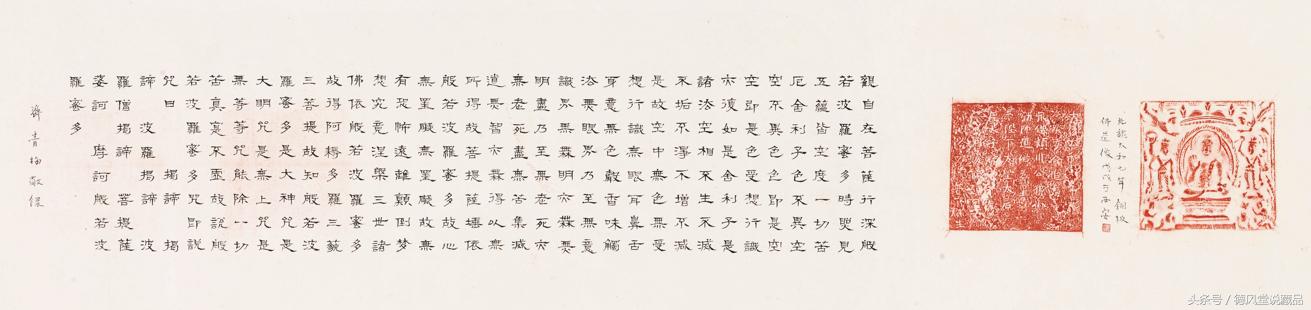 北魏太和七年銅板
佛造像戊戌于西安
觀自在菩薩行深般
若波羅蜜多時照見
五蘊皆空度一切苦
厄舍利子色不異空
空不異色色即是空
空即是色受想行識
亦復如是舍利子是
諸法空相不生不滅
不垢不淨不增不減
是故空中無色無受
想行識無眼耳鼻舌
身意無色聲香味觸
法無眼界乃至無意
識界無無明亦無無
明盡乃至無老死亦
無老死盡無苦集滅
道無智亦無得以無
所得故菩提薩埵依
般若波羅蜜多故心
無罣礙無罣礙故無
有恐怖遠離顛倒夢
想究竟涅槃三世諸
佛依般若波羅蜜多
故得阿耨多羅三藐
三菩提故知般若波
羅蜜多是大神咒是
大明咒是無上咒是
無等等咒能除一切
苦真實不虛故說般
若波羅蜜多咒即說
咒曰 揭諦 揭
諦 波羅揭諦 波
羅僧揭諦 菩提薩
婆訶 摩訶般若波
羅蜜多
齊青梅敬錄
头条号 / 德风堂说藏品